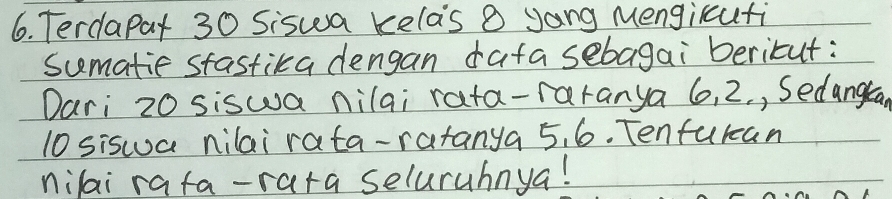 6. Terdapat 30 Siswa kelas 8 yang Mengikuti
Sumatie stastika dengan data sebagai berikut:
Dari 20 siswa nilai rata-ratanya 6,2., Sedangkan
10 siswa nilai rata-ratanya 5,6. Tentukan
nilai rata-rata seluruhnya!